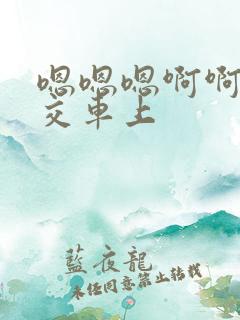 嗯嗯嗯啊啊
交車上
藍夜龍
未経同意禁止转載